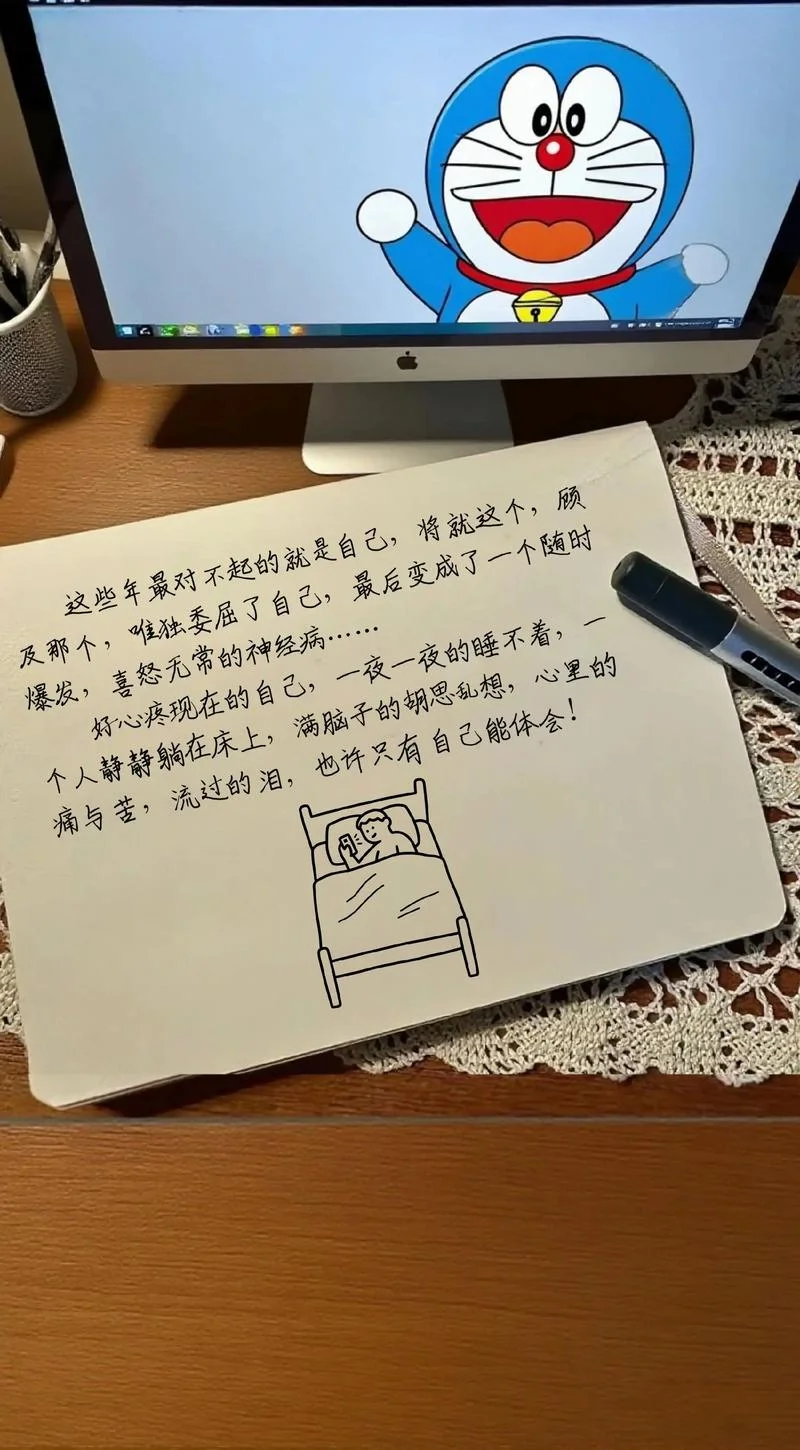 这些年最对不起的就是自己，将就这个，顾
及那个，唯独委屈了自己，最后变成了一个随时
爆发，喜怒无常的神经病……
好心疼现在的自己，一夜一夜的睡不着，一
个人静静躺在床上，满脑子的胡思乱想，心里的
痛与苦，流过的泪，也许只有自己能体会！